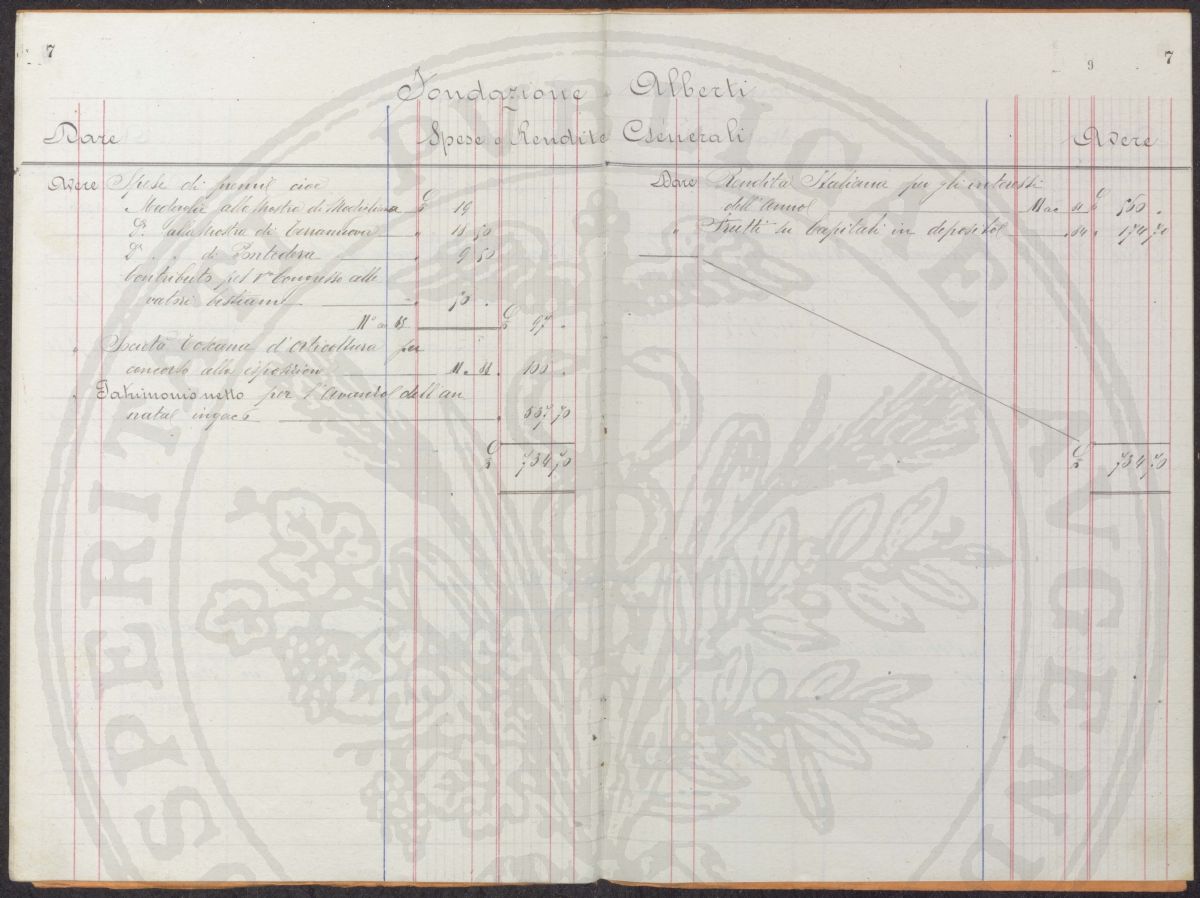 7
9 7
Fondazione Alberti
Dare Spese e Rendite Generali Avere
Avere Spese di premii cioè
Medaglie alla Mostra di £ 19
D.° alla Mostra di " 18 50
D.° " " di Pontedera " 9 50
Contributo pel 1° Congresso alle
vatori bestiame " 50 "
£ 97 "
" Società Toscana d'Orticoltura per
concorso alla esposizione " 100 "
" Patrimonio netto per l'Avanzo dell'an
nata " 537 70
£ 734 70
Dare Rendita Italiana per gli interessi
dell'Anno £ 560 "
" Frutti su Capitali in deposito " 174 70
£ 734 70
SPERITA PUBLICAE AVGEND